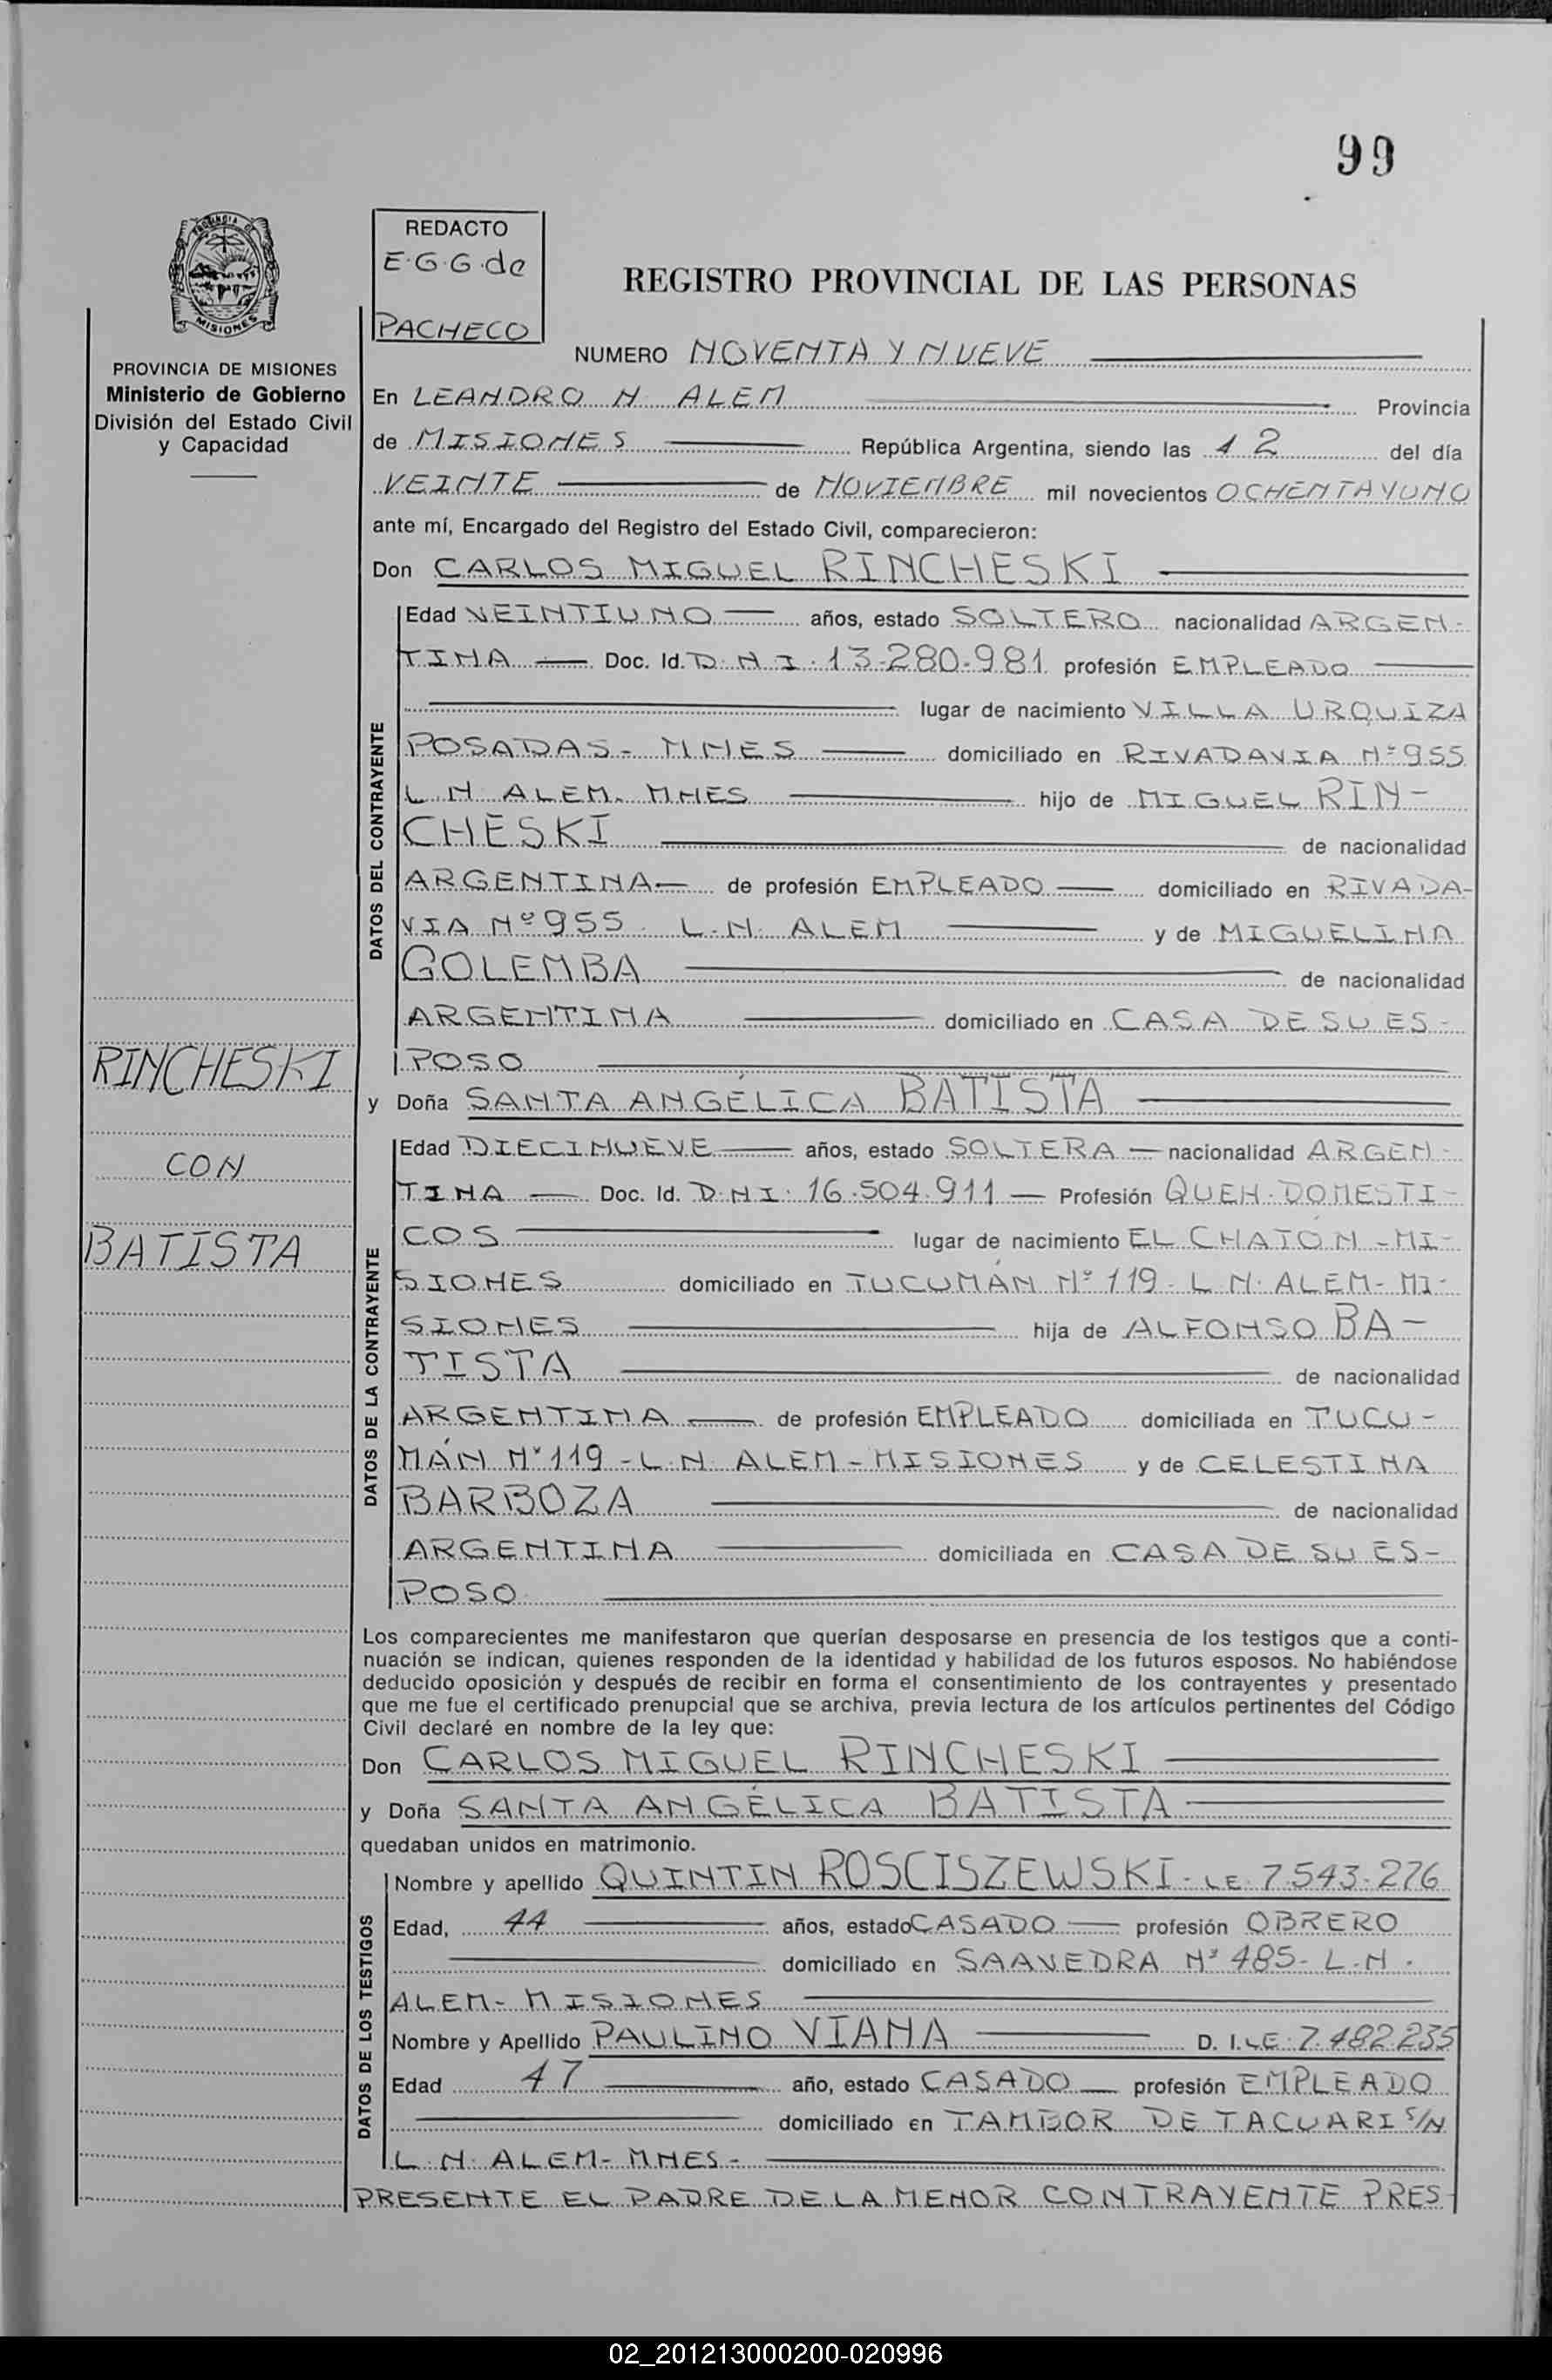 99
REDACTO
E.G.G. de
PACHECO
PROVINCIA DE MISIONES
Ministerio de Gobierno
División del Estado Civil
y Capacidad
REGISTRO PROVINCIAL DE LAS PERSONAS
NUMERO NOVENTA Y NUEVE
En LEANDRO N. ALEM Provincia
de MISIONES República Argentina, siendo las 12 del día
VEINTE de NOVIEMBRE mil novecientos OCHENTA Y UNO
ante mí, Encargado del Registro del Estado Civil, comparecieron:
Don CARLOS MIGUEL RINCHESKI
DATOS DEL CONTRAYENTE
Edad VEINTIUNO años, estado SOLTERO nacionalidad ARGEN-
TINA Doc. Id. D.N.I. 13.280.981 profesión EMPLEADO
lugar de nacimiento VILLA URQUIZA
POSADAS - MNES domiciliado en RIVADAVIA Nº 955
L.N. ALEM. MNES hijo de MIGUEL RIN-
CHESKI de nacionalidad
ARGENTINA de profesión EMPLEADO domiciliado en RIVADA-
VIA Nº 955 L.N. ALEM y de MIGUELINA
GOLEMBA de nacionalidad
ARGENTINA domiciliado en CASA DE SU ES-
POSO
RINCHESKI
CON
BATISTA
y Doña SANTA ANGÉLICA BATISTA
DATOS DE LA CONTRAYENTE
Edad DIECINUEVE años, estado SOLTERA nacionalidad ARGEN-
TINA Doc. Id. D.N.I. 16.504.911 Profesión QUEH. DOMESTI-
COS lugar de nacimiento EL CHATÓN - MI-
SIONES domiciliado en TUCUMÁN Nº 119 - L.N. ALEM - MI-
SIONES hija de ALFONSO BA-
TISTA de nacionalidad
ARGENTINA de profesión EMPLEADO domiciliada en TUCU-
MÁN Nº 119 - L.N. ALEM - MISIONES y de CELESTINA
BARBOZA de nacionalidad
ARGENTINA domiciliada en CASA DE SU ES-
POSO
Los comparecientes me manifestaron que querían desposarse en presencia de los testigos que a conti-
nuación se indican, quienes responden de la identidad y habilidad de los futuros esposos. No habiéndose
deducido oposición y después de recibir en forma el consentimiento de los contrayentes y presentado
que me fue el certificado prenupcial que se archiva, previa lectura de los artículos pertinentes del Código
Civil declaré en nombre de la ley que:
Don CARLOS MIGUEL RINCHESKI
y Doña SANTA ANGÉLICA BATISTA
quedaban unidos en matrimonio.
DATOS DE LOS TESTIGOS
Nombre y apellido QUINTIN ROSCISZEWSKI - L.E. 7.543.276
Edad, 44 años, estado CASADO profesión OBRERO
domiciliado en SAAVEDRA Nº 485 - L.N.
ALEM - MISIONES
Nombre y Apellido PAULINO VIANA D. I. L.E. 7.482.235
Edad 47 año, estado CASADO profesión EMPLEADO
domiciliado en TAMBOR DE TACUARI S/N
L.N. ALEM - MNES -
PRESENTE EL PADRE DE LA MENOR CONTRAYENTE PRES-
02_201213000200-020996